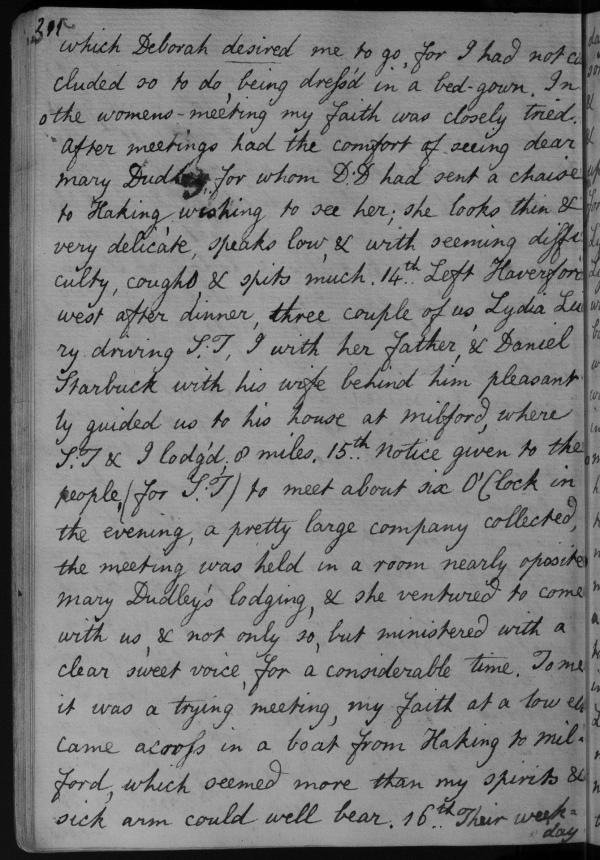 301
which Deborah desired me to go, for I had not
cluded so to do, being dress'd in a bed-gown. In
the womens-meeting my faith was closely tried.
After meetings had the comfort of seeing dear
mary Dudley, for whom D:D had sent a chaise
to Haking wishing to see her; she looks thin &
very delicate, speaks low, & with seeming diffi
culty, coughs & spits much. 14th.. Left Haverford
west after dinner, three couple of us, Lydia Lu
ry driving S:T, I with her father, & Daniel
Starbuck with his wife behind him pleasant
ly guided us to his house at milford, where
S:T & I lodg'd, 8 miles. 15th.. Notice given to the
people, (for S:T) to meet about six O'Clock in
the evening, a pretty large company collected,
the meeting was held in a room nearly oposite
mary Dudley's lodging, & she ventured to come
with us, & not only so, but ministered with a
clear sweet voice, for a considerable time. To me
it was a trying meeting, my faith at a low
came acrofs in a boat from Haking to mil-
ford, which seemed more than my spirits &
sick arm could well bear. 16th.. Their week=
day